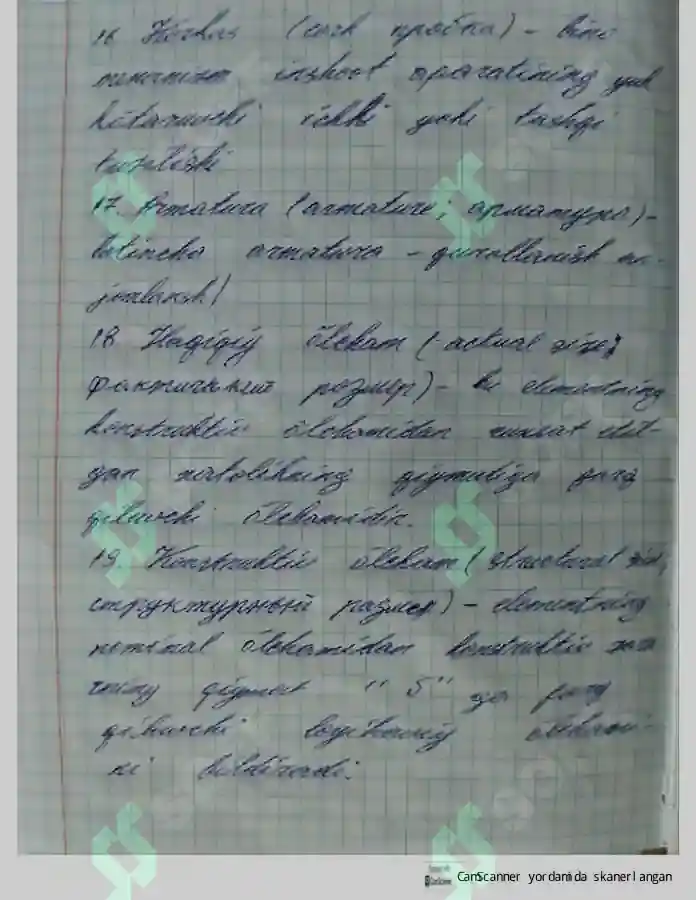 16 Karkas (cork пробка) - bino
mexanizm, inshoot aparatining yuk
kötaruvchi ichki yoki tashqi
tuzilishi
17. Armatura (armature; арматура) -
lotincha armatura - qurollanish an-
jomlanish)
18 Haqiqiy ölcham (-actual size;
фактический розмер) - bu elementning
konstruktiv ölchamidan ruxsat etil-
gan xatolikning qiymatiga farq
qiluvchi ölchamidir.
19. Konstruktiv ölcham (structural size,
структурный размер) - elementning
nominal ölchamidan konstruktiv
qiymat "S" ga farq
qiluvchi loyihaviy ölchami-
ni bildiradi.
CamScanner yordamida skanerlangan